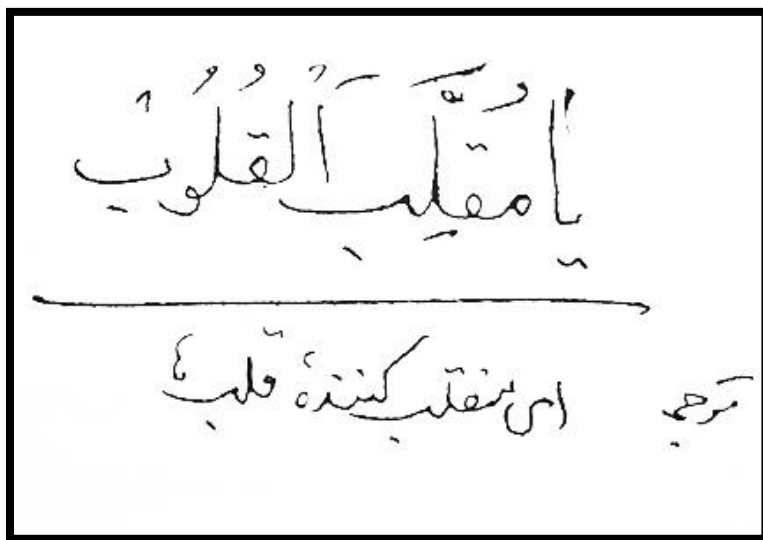 يا مُقَلِّبَ اَلْقُلُوبْ
ترجمه ای منقلب کنندهٔ قلبها